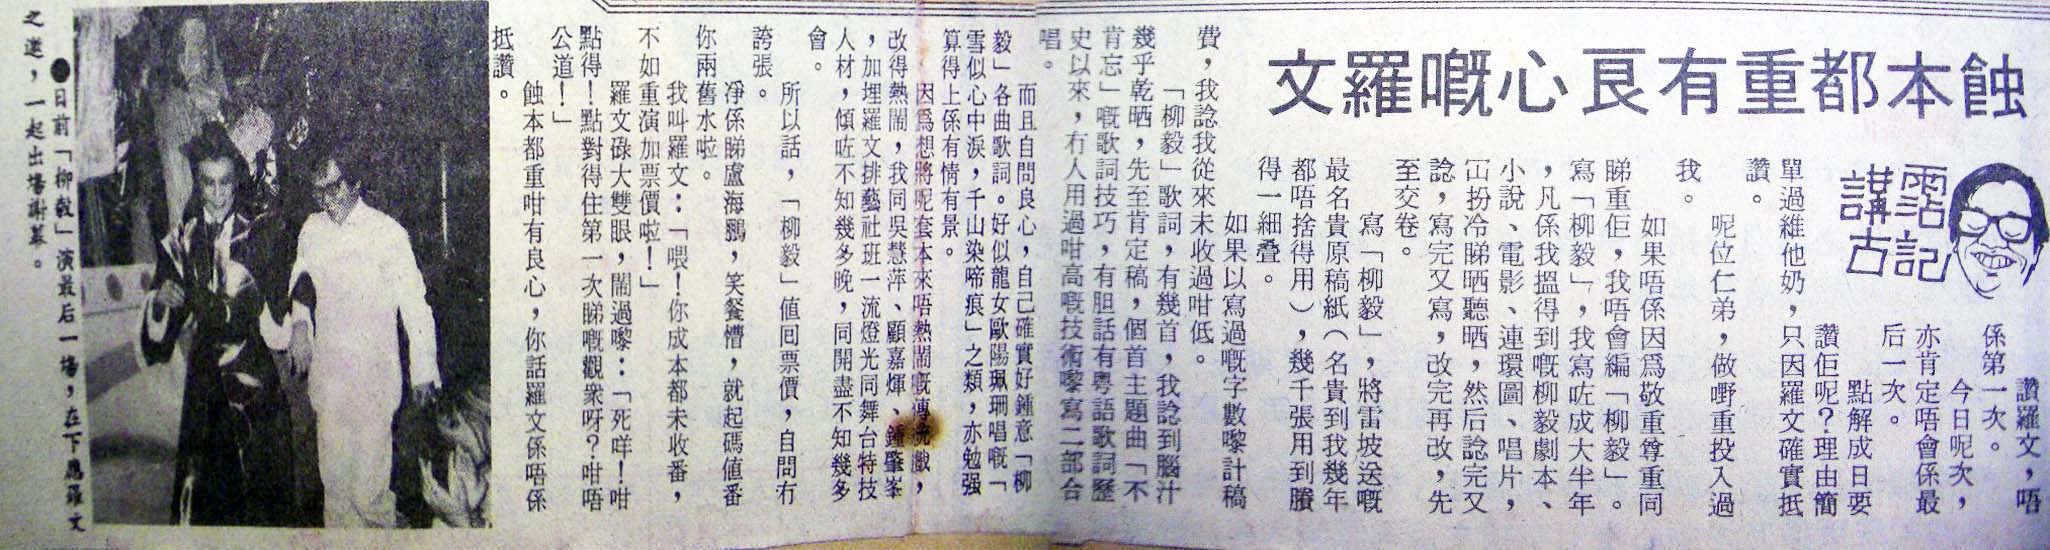 蝕本都重有良心嘅羅文
霑記
講古
讚羅文，唔
係第一次。
今日呢次，
亦肯定唔會係最
后一次。
點解成日要
讚佢呢？理由簡
單過維他奶，只因羅文確實抵
讚。
呢位仁弟，做嘢重投入過
我。
如果唔係因爲敬重尊重同
睇重佢，我唔會編「柳毅」。
寫「柳毅」，我寫咗成大半年
，凡係我搵得到嘅柳毅劇本、
小說、電影、連環圖、唱片，
冚扮冷睇晒聽晒，然后諗完又
諗，寫完又寫，改完再改，先
至交卷。
寫「柳毅」，將雷坡送嘅
最名貴原稿紙（名貴到我幾年
都唔捨得用），幾千張用到賸
得一細叠。
如果以寫過嘅字數嚟計稿
費，我諗我從來未收過咁低。
「柳毅」歌詞，有幾首，我諗到腦汁
幾乎乾晒，先至肯定稿，個首主題曲「不
肯忘」嘅歌詞技巧，有胆話有粵語歌詞歷
史以來，冇人用過咁高嘅技術嚟寫二部合
唱。
而且自問良心，自己確實好鍾意「柳
毅」各曲歌詞。好似龍女歐陽珮珊唱嘅「
雪似心中淚，千山染啼痕」之類，亦勉强
算得上係有情有景。
因爲想將呢套本來唔熱鬧嘅傳統戲，
改得熱鬧，我同吳慧萍、顧嘉煇、鍾肇峯
，加埋羅文排藝社班一流燈光同舞台特技
人材，傾咗不知幾多晚，同開盡不知幾多
會。
所以話，「柳毅」値囘票價，自問冇
誇張。
凈係睇盧海鵬，笑餐懵，就起碼値番
你兩舊水啦。
我叫羅文：「喂！你成本都未收番，
不如重演加票價啦！」
羅文碌大雙眼，鬧過嚟：「死咩！咁
點得！點對得住第一次睇嘅觀衆呀？咁唔
公道！」
蝕本都重咁有良心，你話羅文係唔係
抵讚。
●日前「柳毅」演最后一場，在下應羅文
之邀，一起出場謝幕。